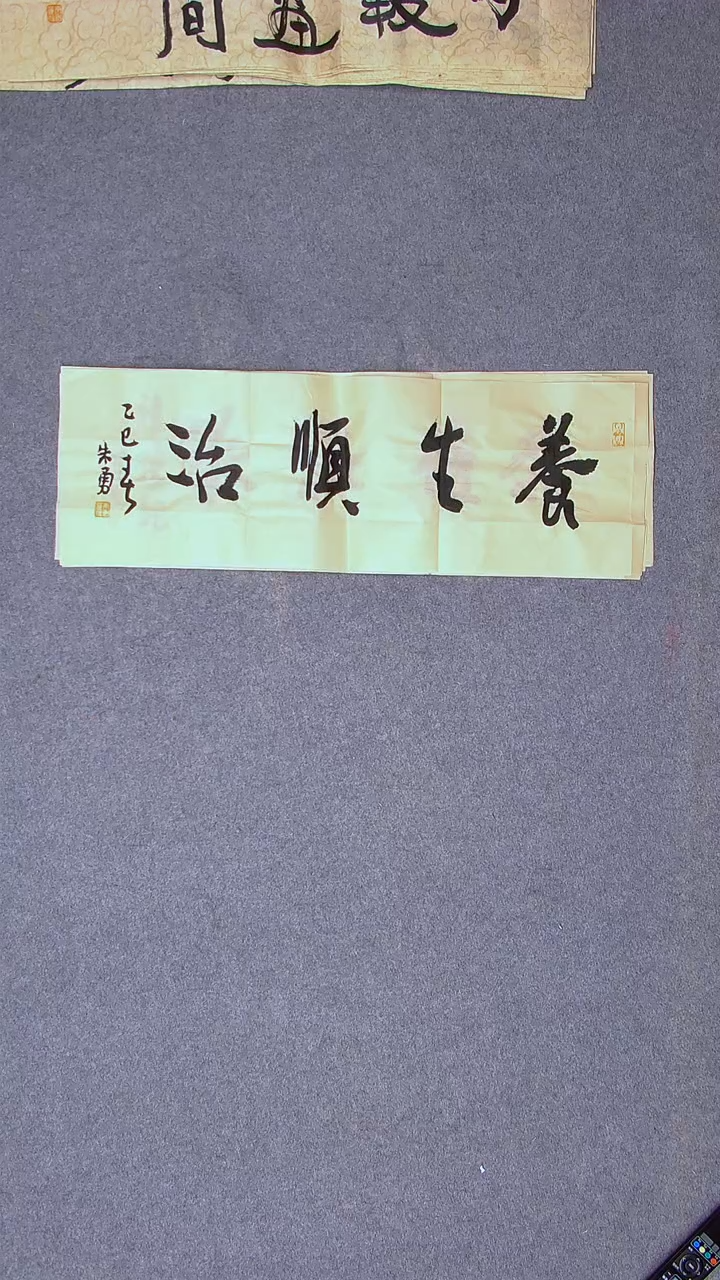 間
養生順治
乙巳春
朱勇